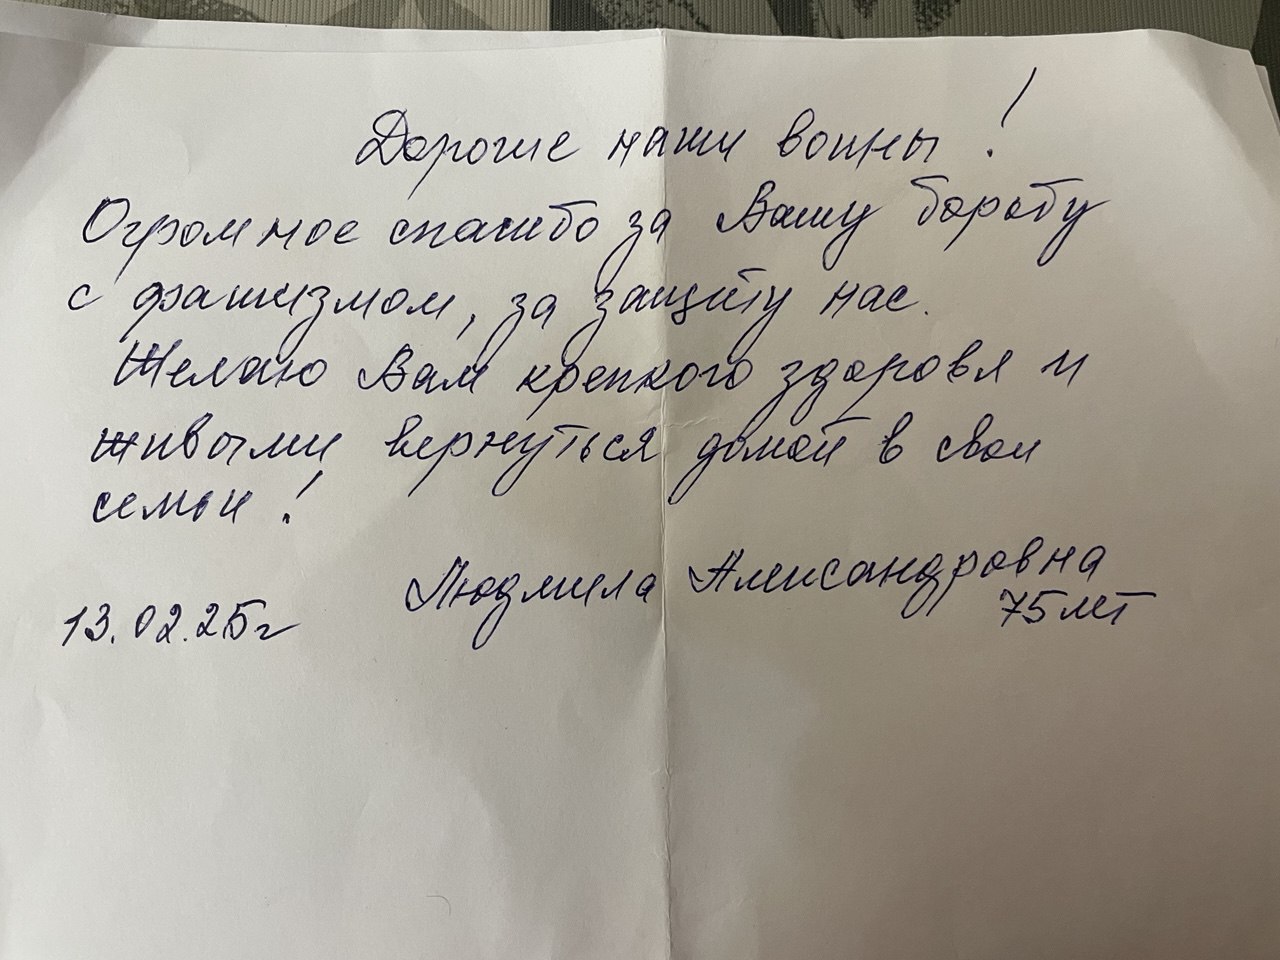 Дорогие наши воины!
Огромное спасибо за Вашу борьбу
с фашизмом, за защиту нас.
Желаю Вам крепкого здоровя и
живыми вернуться домой в свои
семьи!
Людмила Александровна
75 лет
13.02.25г